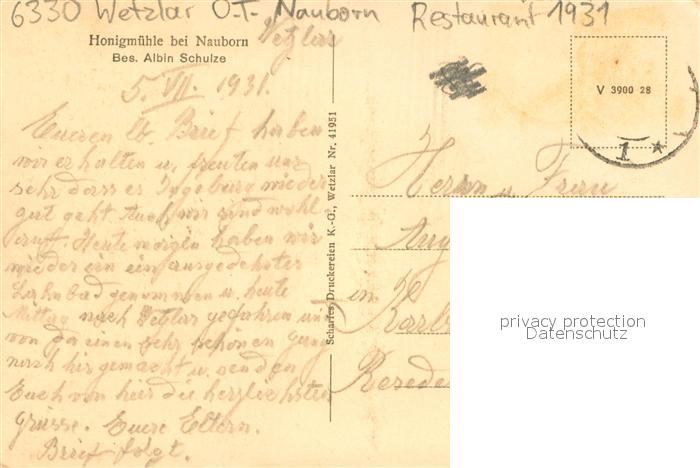 6330 Wetzlar O.-T.- Nauborn Restaurant 1931
Honigmühle bei Nauborn
Bes. Albin Schulze
Wetzlar
5. VII. 1931.
Eueren lb. Brief haben
wir erhalten u. freuten uns
sehr dass es Ingeburg wieder
gut geht. Auch wir sind wohl-
auf. Heute morgen haben wir
wieder ein ausgedehntes
Lahnbad genommen u. heute
Mittag nach Wetzlar gefahren und
von da einen sehr schönen Gang
nach hier gemacht u. senden
Euch von hier die herzlichsten
Grüsse. Euere Eltern.
Brief folgt.
Scharfes Druckereien K.-G., Wetzlar Nr. 41951
V 3900 28
1 *
Herrn u. Frau
Aug
in
Karls
Resede
privacy protection
Datenschutz